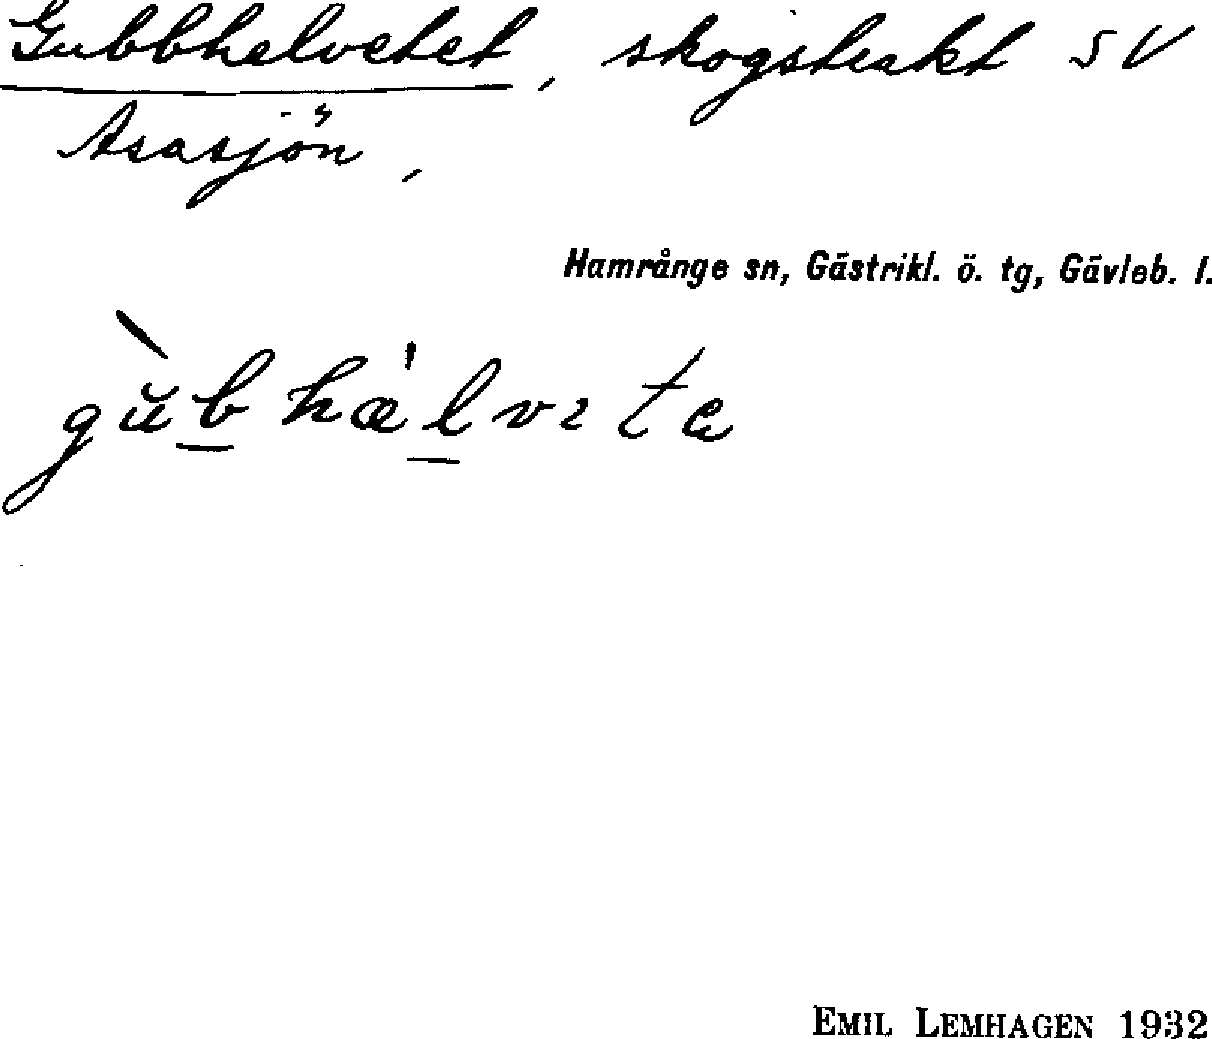 Gubbhelvetet, skogstrakt SV
Asasjön,
Hamrånge sn, Gästrikl. ö. tg, Gävleb. l.
gŭ̀b̲hæ̍l̲vıtę
EMIL LEMHAGEN 1932